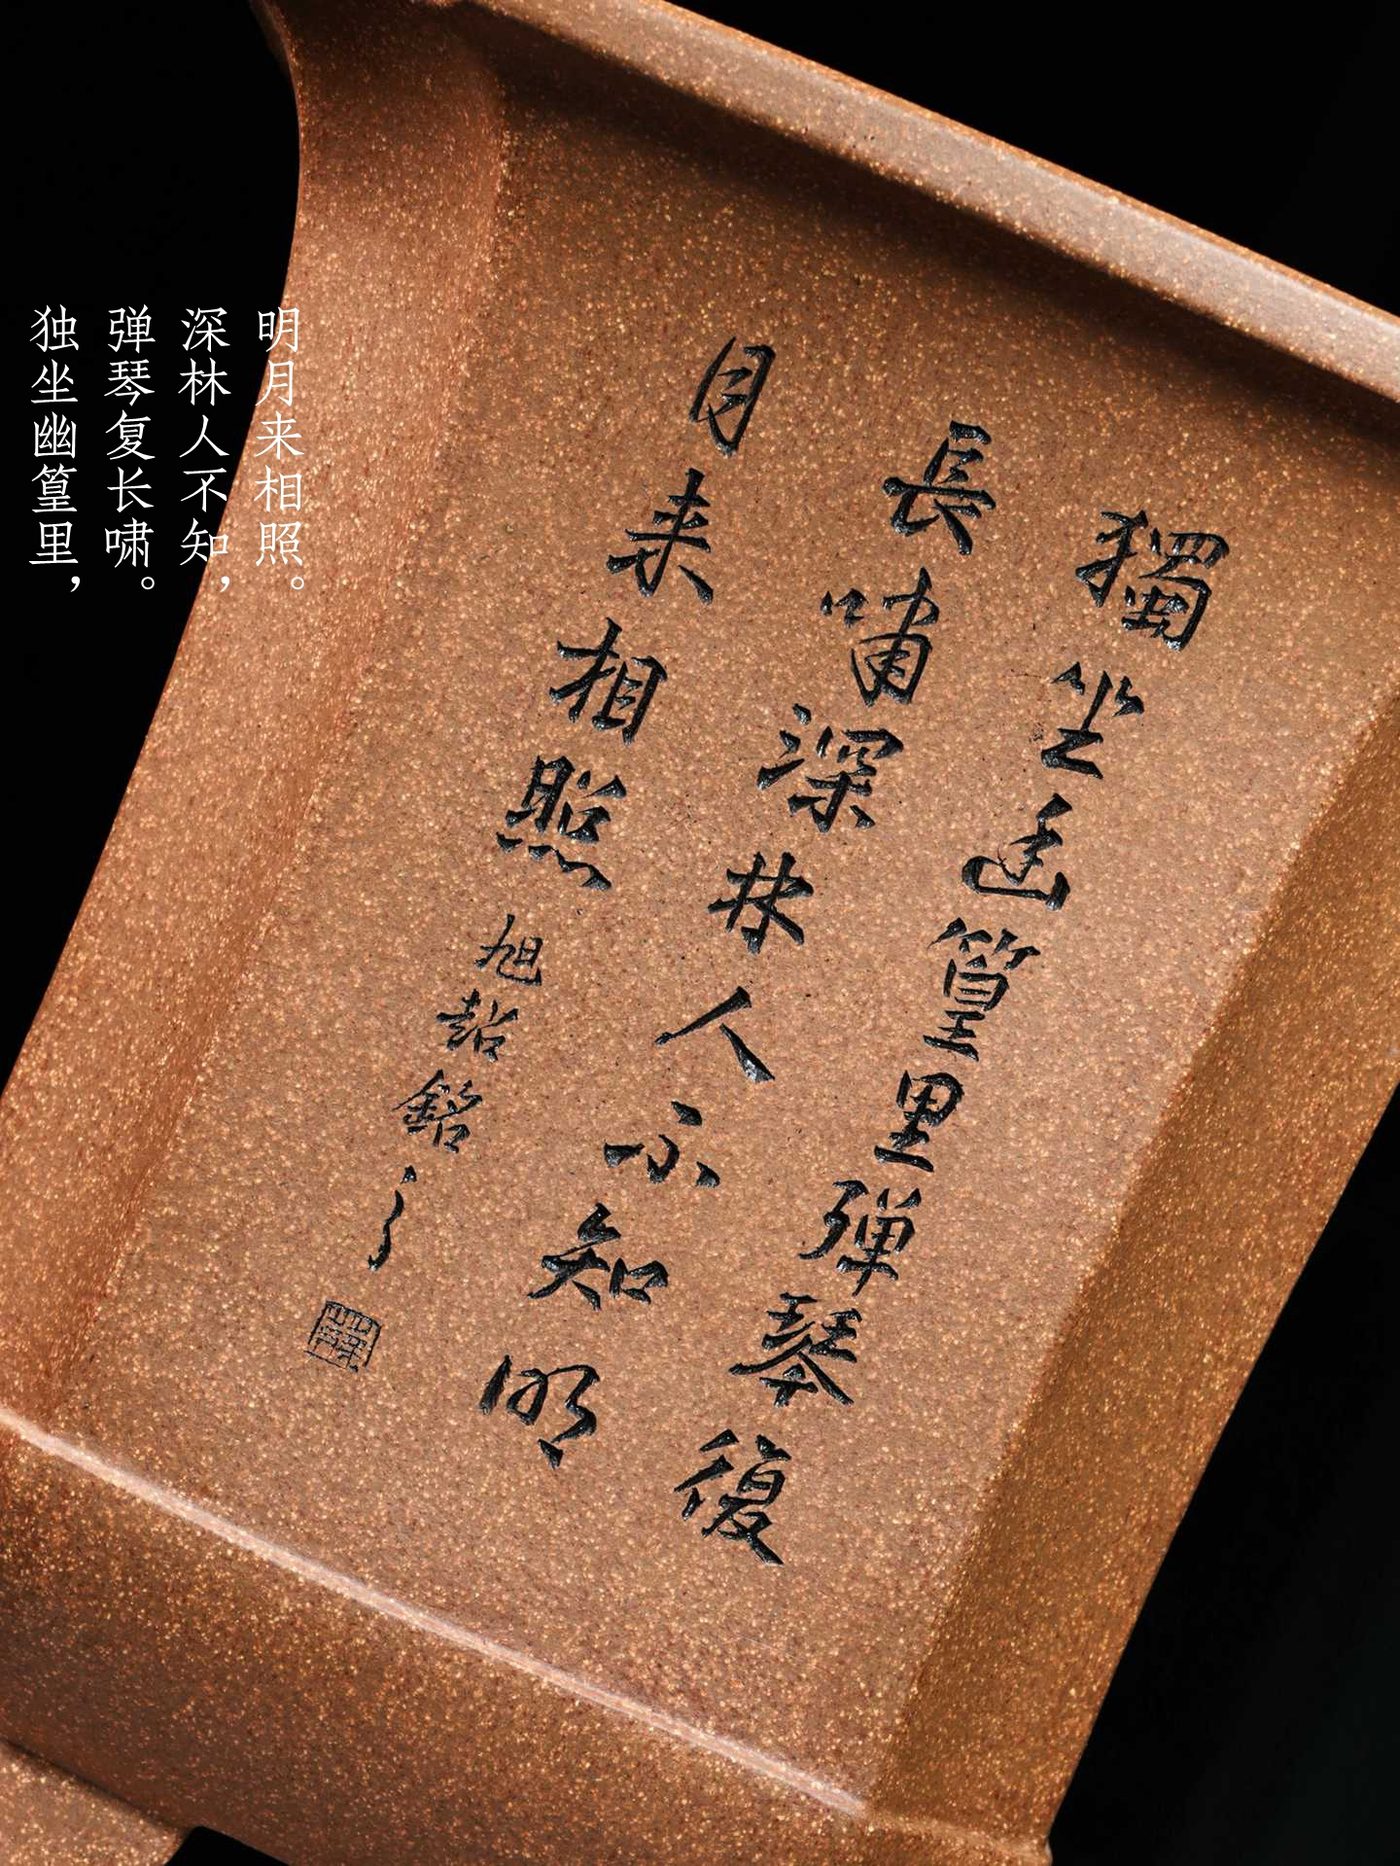 独坐幽篁里，
弹琴复长啸。
深林人不知，
明月来相照。
獨坐幽篁里弹琴復
長嘯深林人不知明
月来相照
旭銘之